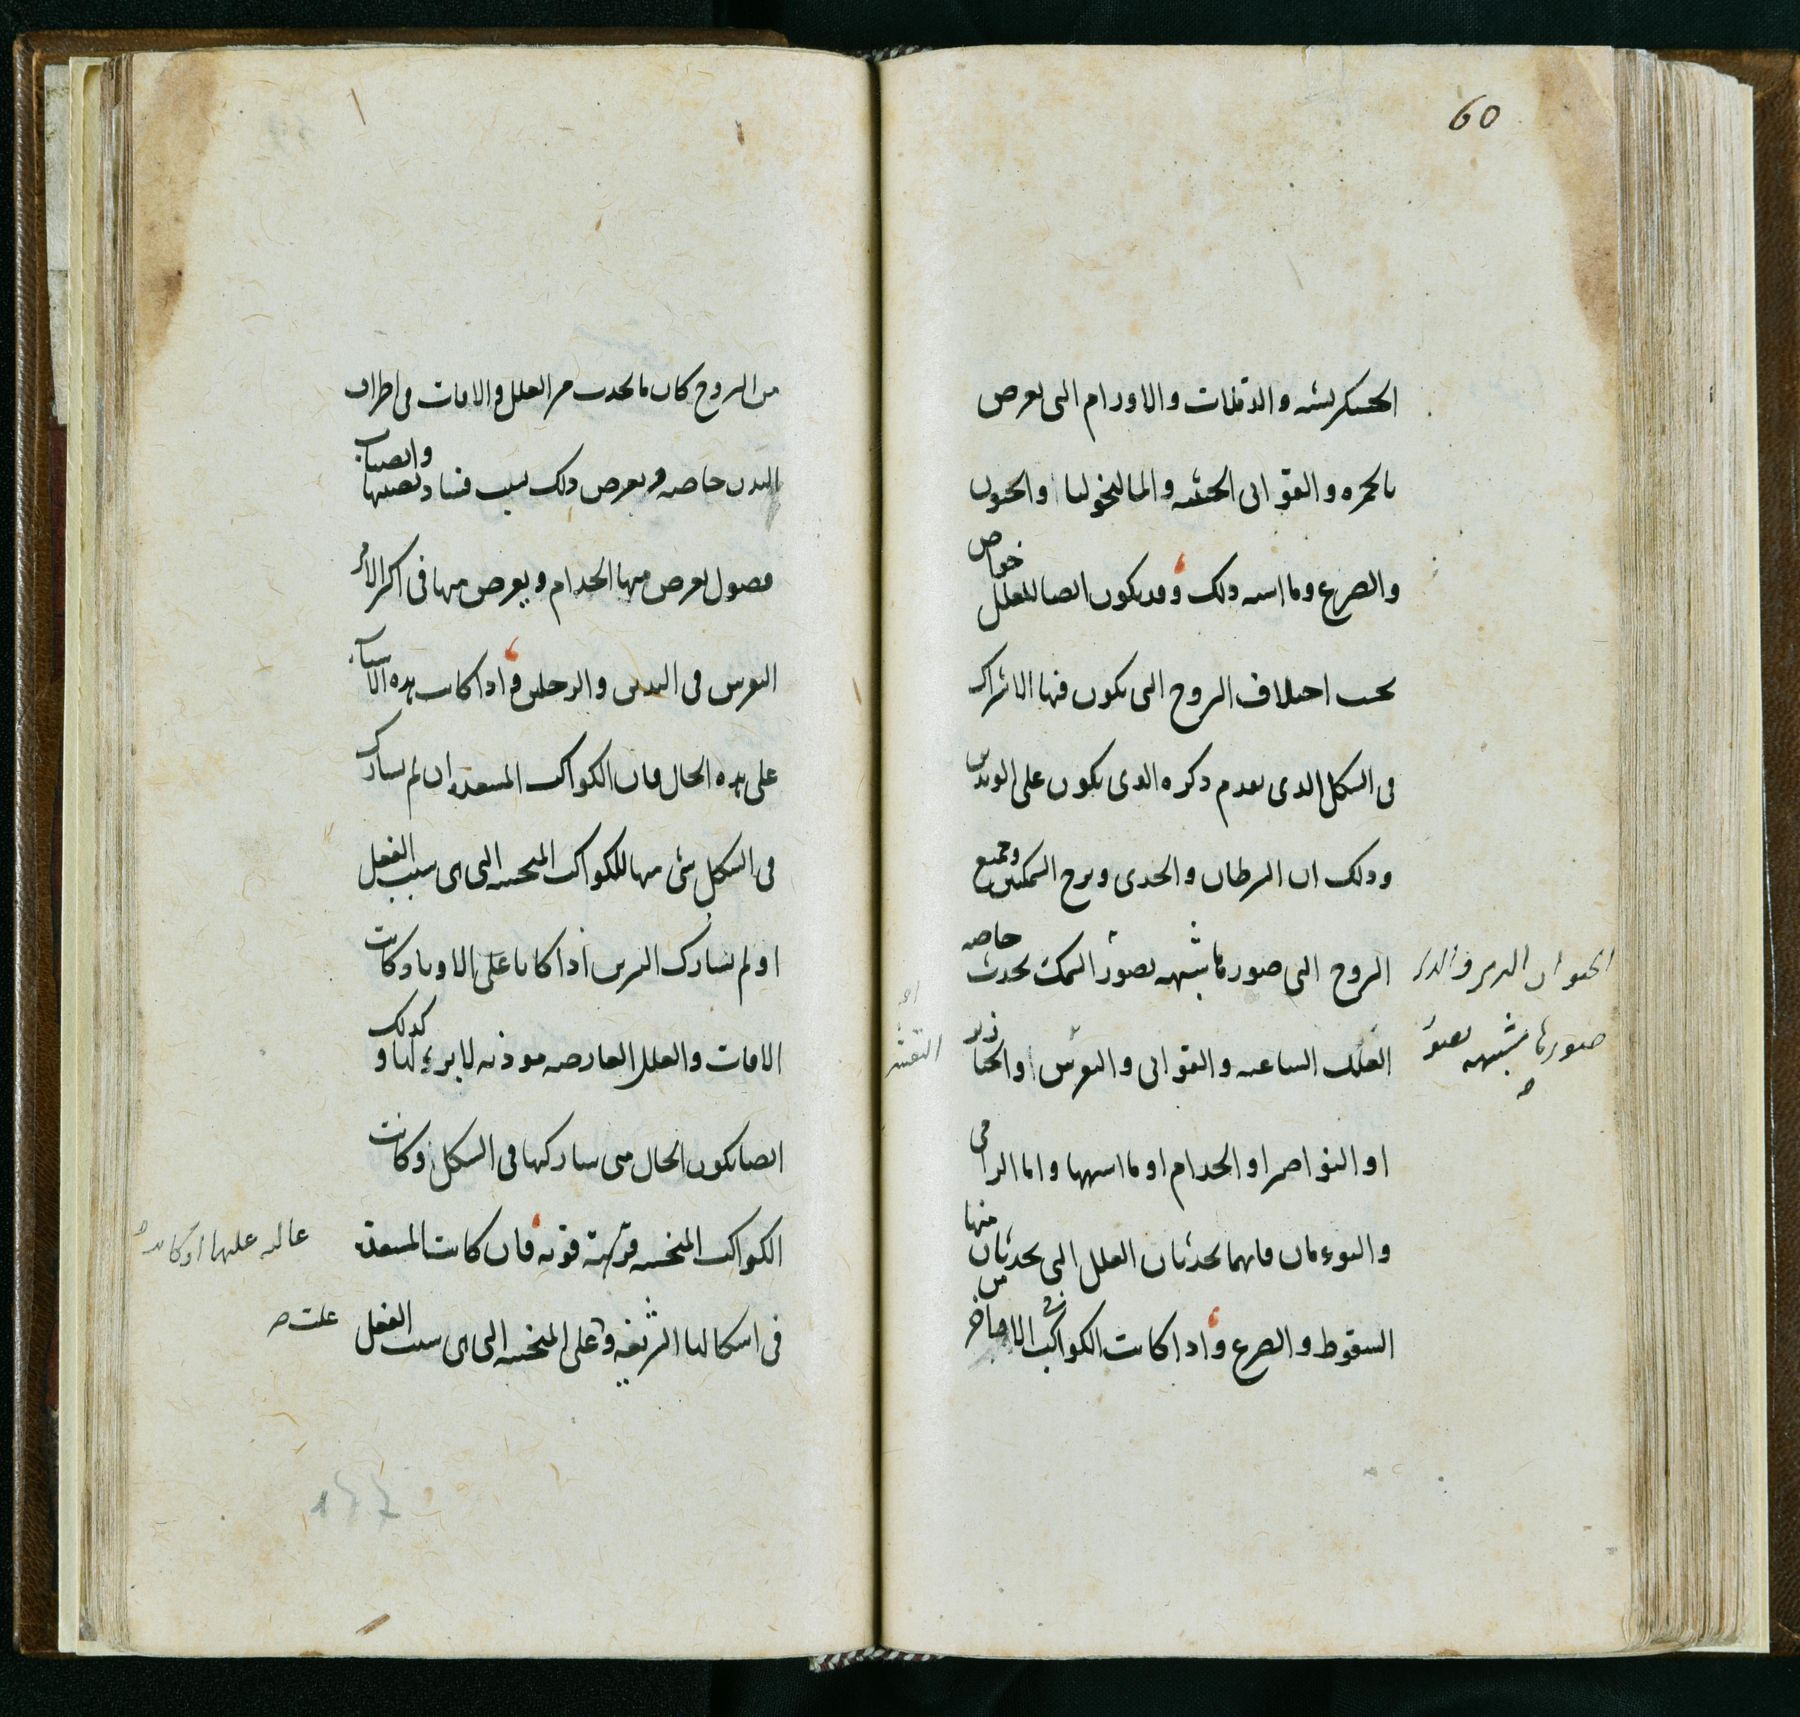 60
الخشكريشه والدملات والاورام التى تعرض
بالحمره والقوابى الخشنه والماليخوليا والجنون
والصرع وما اشبه ذلك وقد يكون ايضا للعلل خواص
بحسب اختلاف البروج التى يكون فيها الاشراك
فى الشكل الذى تقدم ذكره الذى يكون على الوتدين
وذلك ان السرطان والجدى وبرج السمكتين وجميع
البروج التى صورتها شبيهه بصور السمك تحدث خاصه
العلل الساعيه والقوابى والبرص او الخنازير
او النواصير او الجذام او ما اشبهها واما الرامى
والتوءمان فانهما يحدثان العلل التى يحدثان منها من
السقوط والصرع واذا كانت الكواكب فى الاواخر
الحيوان البرى والذى
صورتها شبيهه بصور
من البروج كان ما يحدث من العلل والافات فى اطراف
البدن خاصه ويعرض ذلك بسبب فساد وانصباب
فصول يعرض منها الجذام ويعرض منها فى اكثر الامر
النقرس فى اليدين والرجلين واذا كانت هذه الاسباب
على هذه الحال فان الكواكب المسعده ان لم تشارك
فى الشكل شى منها للكواكب المنحسه التى هى سبب الفعل
او لم تشارك النيرين اذا كانا على الاوتاد كانت
الافات والعلل العارضه موذيه لا برء لها وكذلك
ايضا يكون الحال متى شاركتها فى الشكل وكانت
الكواكب المنحسه قويه فان كانت المسعده
فى اشكالها الشريفه وعلى المنحسه التى هى سبب الفعل
عاليه عليها او كانت
علت صـ